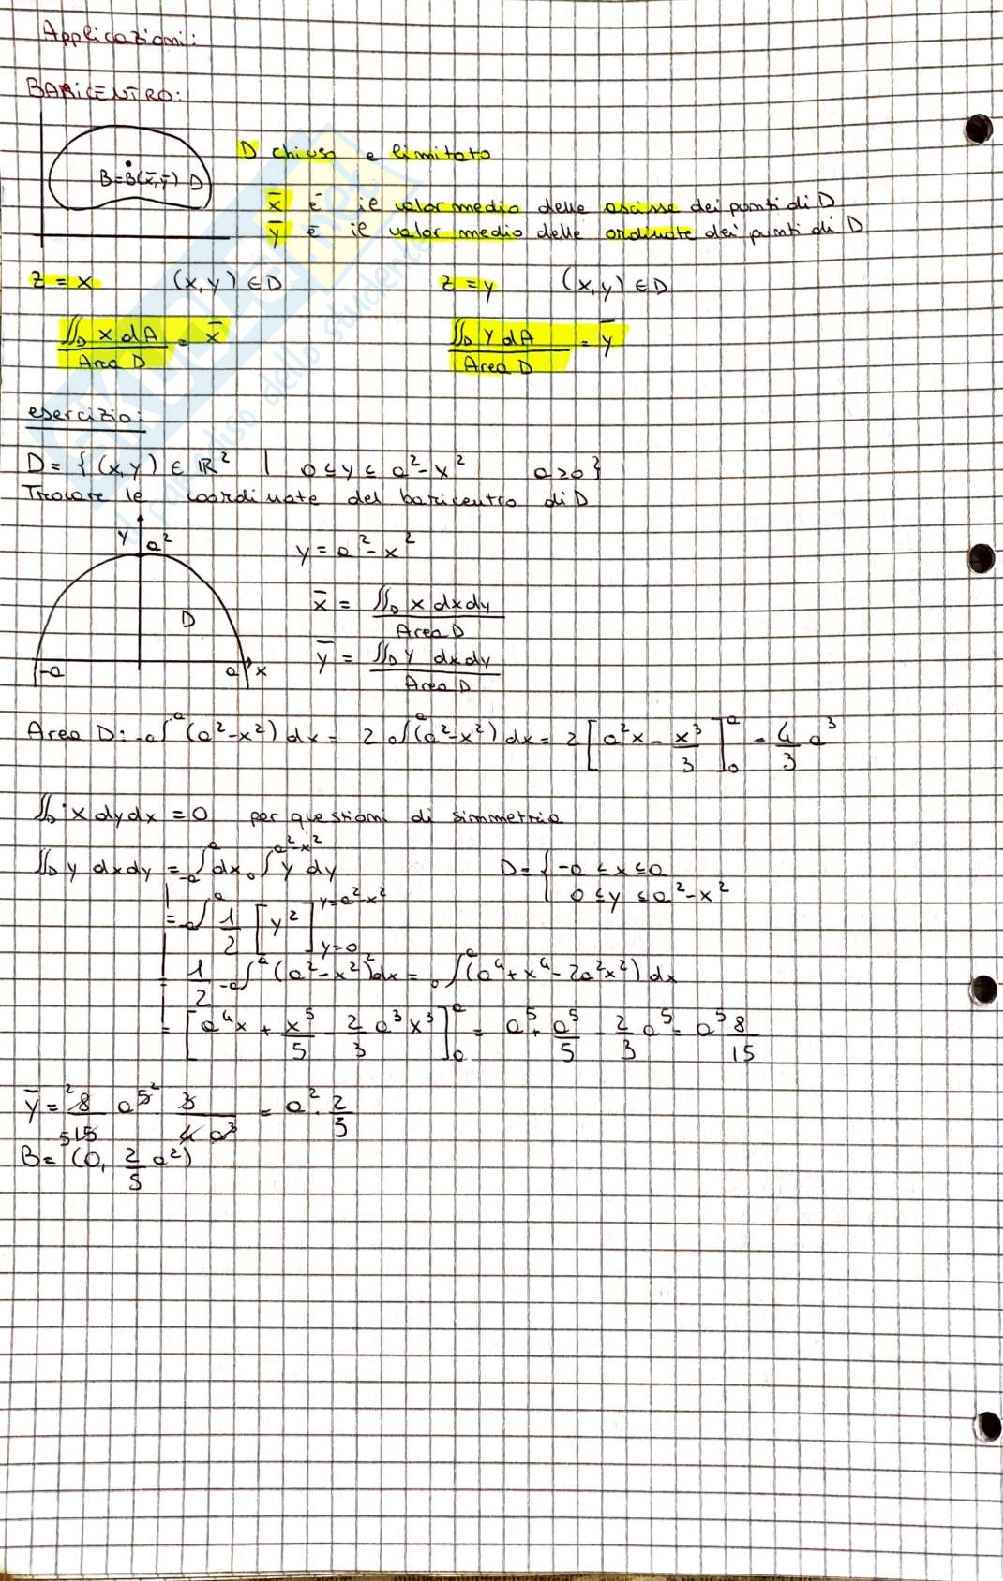 Applicazioni:
BARICENTRO:
B=B(x̄,ȳ) D
D chiuso e limitato
x̄ è il valor medio delle ascisse dei punti di D
ȳ è il valor medio delle ordinate dei punti di D
z = x (x,y) ∈ D z = y (x,y) ∈ D
∬_D x dA / Area D = x̄ ∬_D y dA / Area D = ȳ
esercizio:
D = {(x,y) ∈ ℝ² | 0 ≤ y ≤ a²-x² a≥0}
Trovare le coordinate del baricentro di D
y a²
y = a²-x²
x̄ = ∬_D x dxdy / Area D
D
ȳ = ∬_D y dxdy / Area D
-a a x
Area D: ₋ₐ∫ᵃ (a²-x²) dx = 2 ₀∫ᵃ (a²-x²) dx = 2 [a²x - x³/3]₀ᵃ = 4/3 a³
∬_D x dydx = 0 per questioni di simmetria
∬_D y dxdy = ₋ₐ∫ᵃ dx ₀∫^(a²-x²) y dy D = { -a ≤ x ≤ a
0 ≤ y ≤ a²-x²
= ₋ₐ∫ᵃ 1/2 [y²]_(y=0)^(y=a²-x²)
= 1/2 ₋ₐ∫ᵃ (a²-x²)² dx = ₀∫ᵃ (a⁴ + x⁴ - 2a²x²) dx
= [a⁴x + x⁵/5 - 2/3 a³x³]₀ᵃ = a⁵ + a⁵/5 - 2/3 a⁵ = a⁵ 8/15
ȳ = 8/15 a⁵ · 3/4a³ = a² · 2/5
B = (0, 2/5 a²)